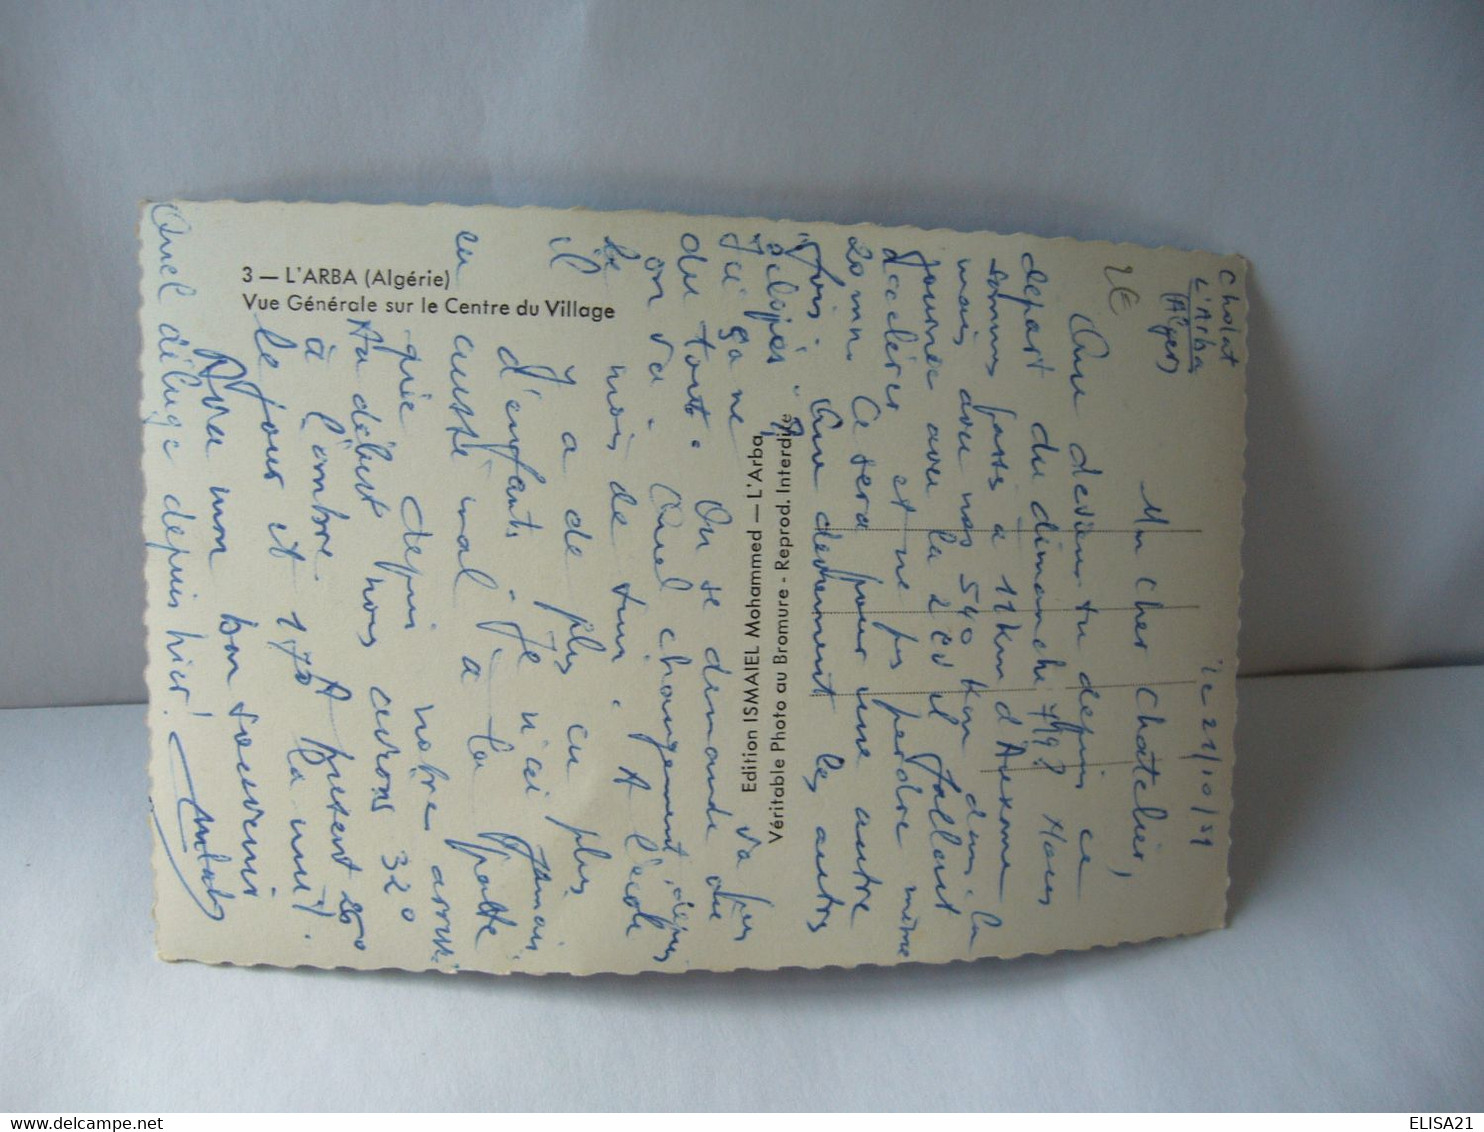 Cholat
L'Arba
(Alger)
le 21/10/59
2€
Mon cher Chatelier,
Que deviens tu depuis ce
départ du dimanche Nous
sommes passés à 11 km d'Auxonne
mais avec nos 540 km dans la
journée avec la 2 cv il fallait
accélérer et ne pas perdre même
20 mn. Ce sera pour une autre
fois ! Que deviennent les autres
Ici ça ne va pas
du tout. On se demande où
on va. Quel changement depuis
le mois de juin. A l'école
il y a de plus en plus
d'enfants. Je n'ai jamais
eu aussi mal à la
depuis notre arrivée
Au début nous avions 32°
à l'ombre. A présent 25°
le jour et 17° la nuit.
mon bon souvenir
Quel déluge depuis hier !
3 — L'ARBA (Algérie)
Vue Générale sur le Centre du Village
Edition ISMAIEL Mohammed — L'Arba
Véritable Photo au Bromure - Reprod. Interdite
ELISA21